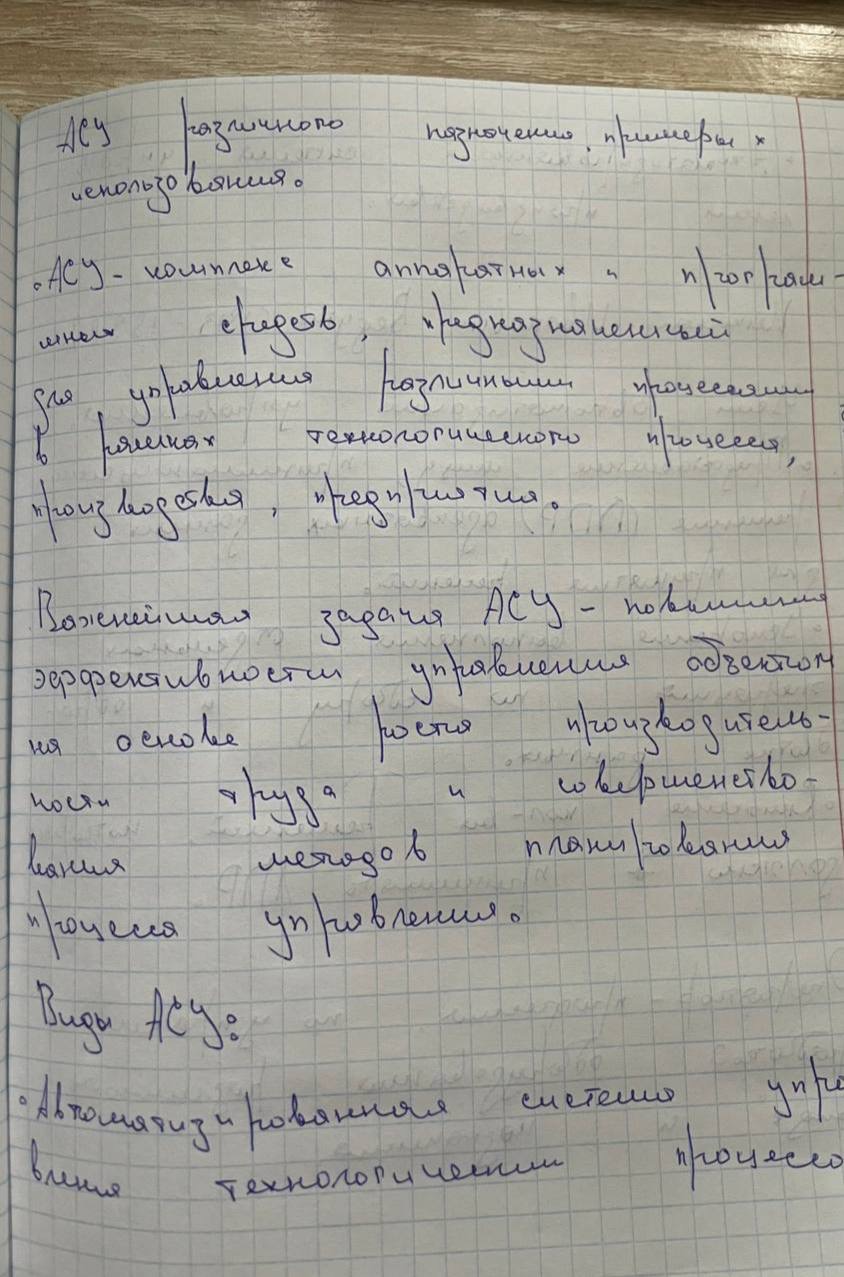 АСУ различного назначения, примеры их
использования.
• АСУ - комплекс аппаратных и програм-
мных средств, предназначенный
для управления различными процессами
в рамках технологического процесса,
производства, предприятия.
Важнейшая задача АСУ - повышения
эффективности управления объектом
на основе роста производитель-
ности труда и совершенство-
вания методов планирования
процесса управления.
Виды АСУ:
• Автоматизированная система упра
вления технологическим процессо